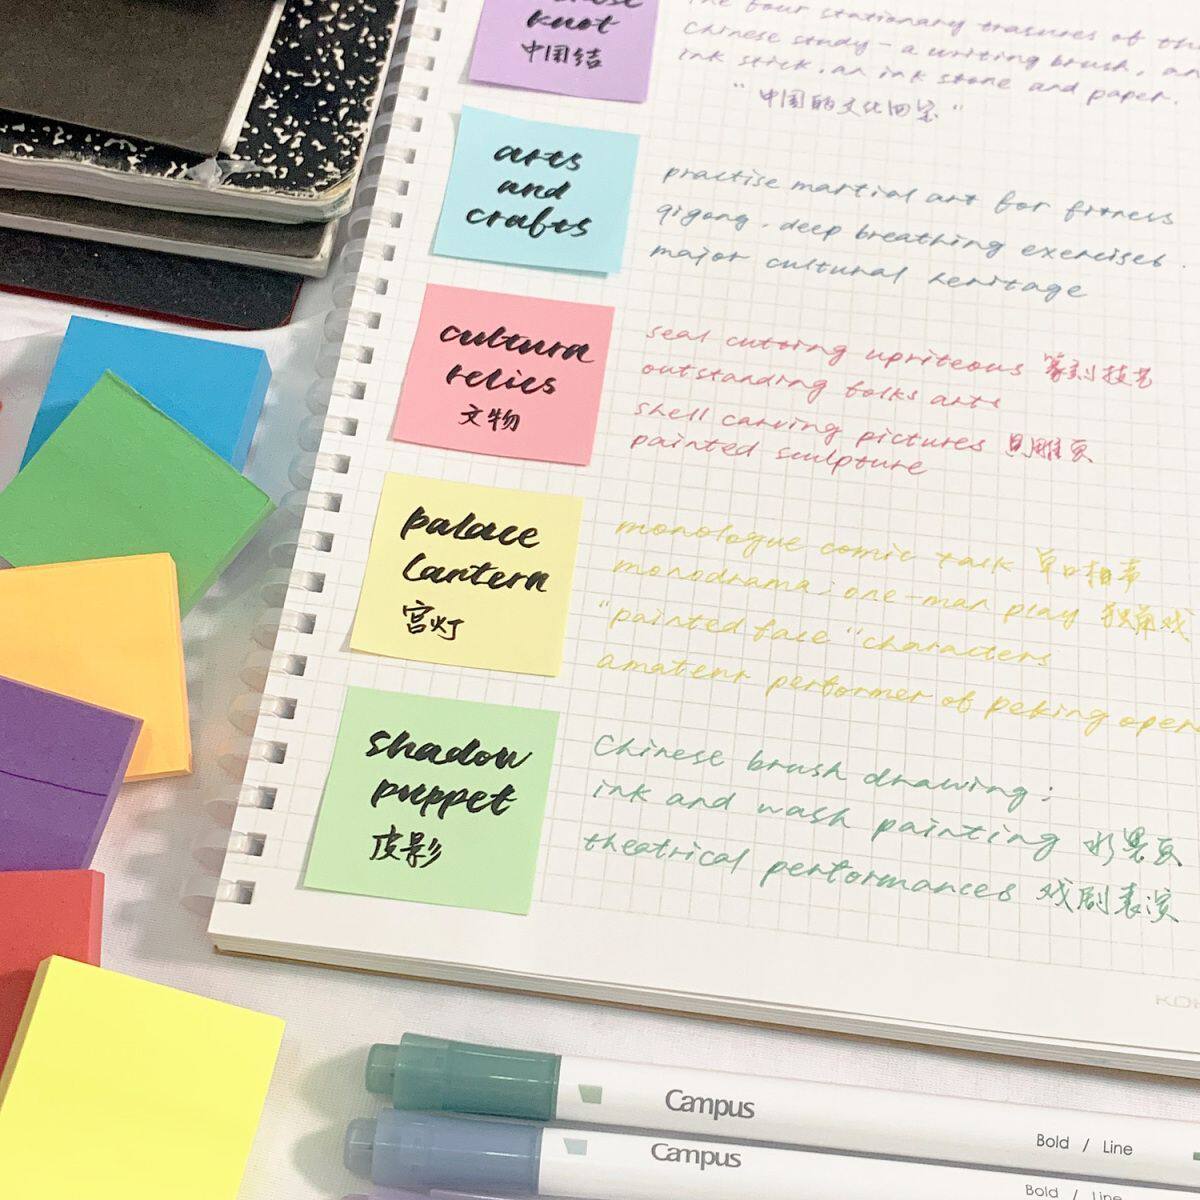 knot
中国结
The four stationary trasures of the
Chinese study - a writing brush, an
ink stick, an ink stone and paper.
"中国的文化四宝"
arts
and
crafts
practise martial art for fitness
qigong, deep breathing exercises.
major cultural heritage
cultura
relics
文物
seal cutting upriteous 篆刻技艺
outstanding folks arts
shell carving pictures 贝雕画
painted sculpture
palace
lantern
宫灯
monologue comic talk 单口相声
monodrama; one-man play 独角戏
"painted face" characters
amateur performer of peking oper
shadow
puppet
皮影
Chinese brush drawing;
ink and wash painting 水墨画
theatrical performances 戏剧表演
Campus
Bold / Line
Campus
Bold / Line